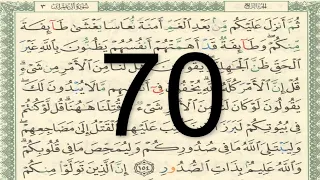 الجزء الرابع سورة آل عمران ٣
ثُمَّ أَنزَلَ عَلَيْكُم مِّنۢ بَعْدِ ٱلْغَمِّ أَمَنَةً نُّعَاسًا يَغْشَىٰ طَآئِفَةً
مِّنكُمْ وَطَآئِفَةٌ قَدْ أَهَمَّتْهُمْ أَنفُسُهُمْ يَظُنُّونَ بِٱللَّهِ غَيْرَ
ٱلْحَقِّ ظَنَّ ٱلْجَٰهِلِيَّةِ مِنَ ٱلْأَمْرِ مِن شَىْءٍ
قُلْ إِنَّ ٱلْأَمْرَ كُلَّهُۥ مَّا لَا يُبْدُونَ لَكَ
يَقُولُونَ لَوْ كَانَ لَنَا مِنَ ٱلْأَمْرِ قُتِلْنَا هَٰهُنَا قُل لَّوْ كُنتُمْ
فِى بُيُوتِكُمْ لَبَرَزَ عَلَيْهِمُ ٱلْقَتْلُ إِلَىٰ مَضَاجِعِهِمْ
وَلِيَبْتَلِىَ ٱللَّهُ مَا فِى صُدُورِكُمْ وَلِيُمَحِّصَ مَا فِى قُلُوبِكُمْ
وَٱللَّهُ عَلِيمٌۢ بِذَاتِ ٱلصُّدُورِ ١٥٤ إِنَّ ٱلَّذِينَ تَوَلَّوْا۟ مِنكُمْ
70